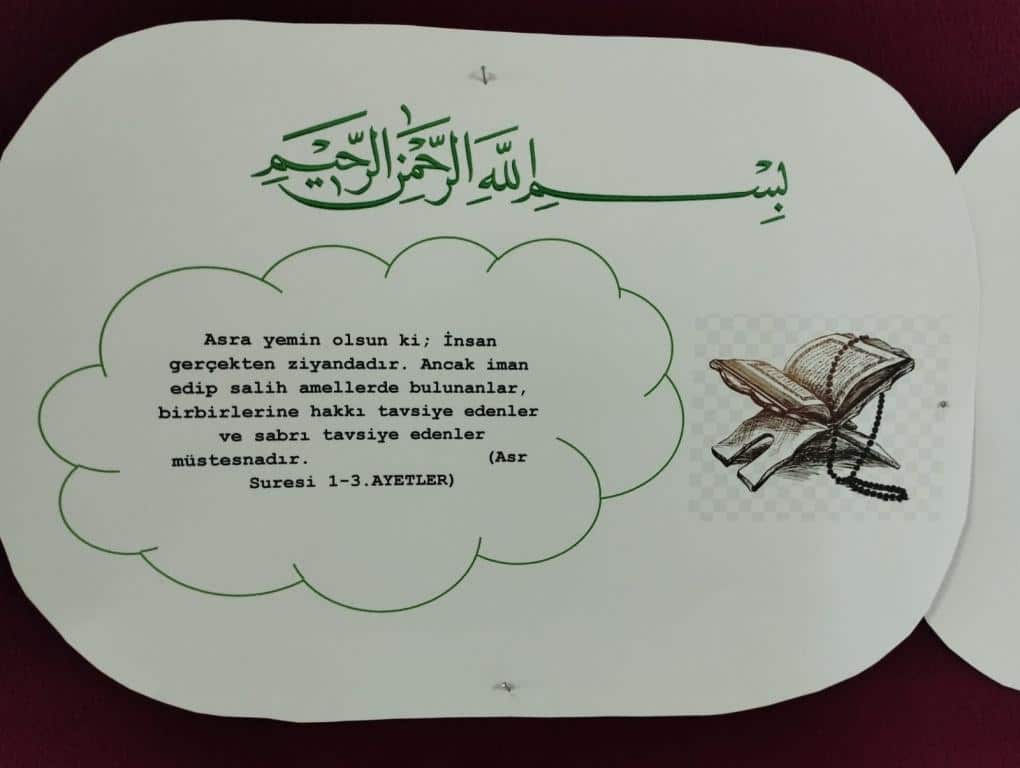 بِسْمِ اللّٰهِ الرَّحْمٰنِ الرَّحٖيمِ
Asra yemin olsun ki; İnsan
gerçekten ziyandadır. Ancak iman
edip salih amellerde bulunanlar,
birbirlerine hakkı tavsiye edenler
ve sabrı tavsiye edenler
müstesnadır. (Asr
Suresi 1-3.AYETLER)